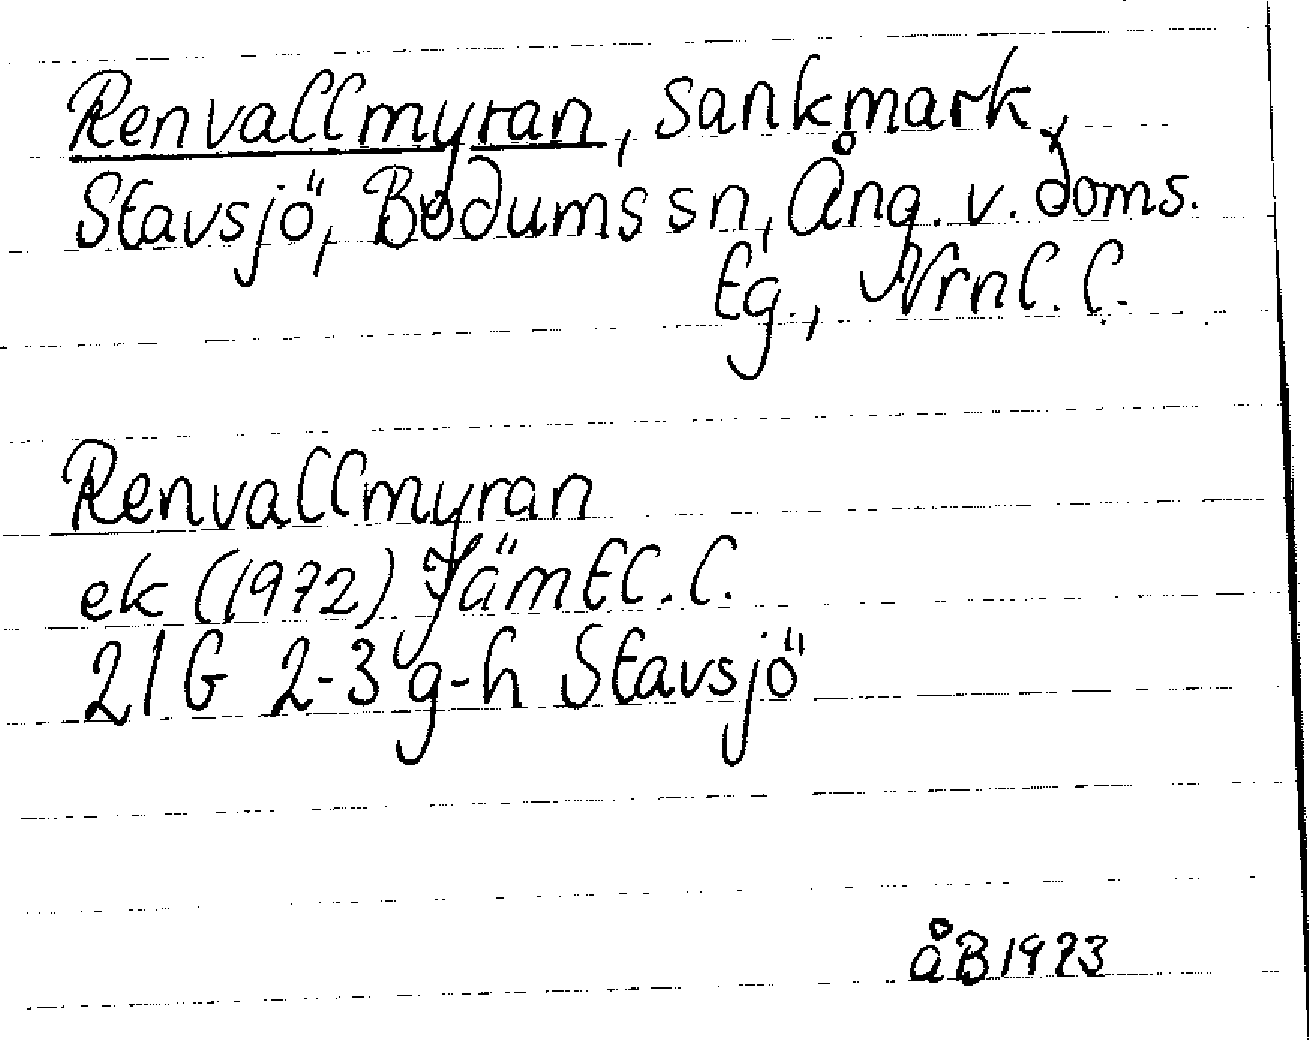 Renvallmyran, sankmark,
Stavsjö, Bodums sn, Ång. v. doms.
tg., Vrnl. l.
Renvallmyran
ek (1972) Jämtl. l.
21G 2-3 g-h Stavsjö
åB 1973